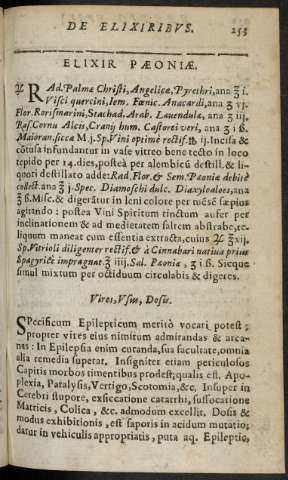 DE ELIXIRIBVS. 255
ELIXIR PÆONIÆ.
℞ RAd. Palmæ Christi, Angelicæ, Pyrethri, ana ʒ i.
Visci quercini, Sem. Fœnic. Anacardi, ana ʒ vj.
Flor. Rorismarini, Stæchad. Arab. Lauendulæ, ana ʒ iij.
Ras. Cornu Alcis, Cranij hum. Castorei veri, ana ʒ i ß.
Maioran. siccæ M j. Sp. Vini optimè rectif. ℔ ij. Incisa &
cōtusa infundantur in vase vitreo bene tecto in loco
tepido per 14. dies, posteà per alembicū destill. & li-
quori destillato adde: Rad. Flor. & Sem. Pæoniæ debitè
collect. ana ʒ j. Spec. Diamoschi dulc. Diaxyloaloes, ana
ʒ ß. Misc. & digerātur in leni colore per mēsē sæpius
agitando: postea Vini Spiritum tinctum aufer per
inclinationem & ad medietatem saltem abstrahe, re-
liquum maneat cum essentia extracta, cuius ℥ xij.
Sp. Vitrioli diligenter rectif. & à Cinnabari natiua prius
Spagyricè imprægnat. ʒ iiij. Sal. Pæoniæ, ʒ i ß. Sicque
simul mixtum per octiduum circulabis & digeres.
Vires, Vsus, Dosis.
SPecificum Epilepticum meritò vocari potest;
propter vires eius nimitum admirandas & arca-
nas: In Epilepsia enim curanda, sua facultate, omnia
alia remedia superat. Insigniter etiam periculosos
Capitis morbos timentibus prodest; qualis est. Apo-
plexia, Paralysis, Vertigo, Scotomia, &c. Insuper in
Cerebri stupore, exsiccatione catarrhi, suffocatione
Matricis, Colica, &c. admodum excellit. Dosis &
modus exhibitionis, est saporis in acidum mutatio;
datur in vehiculis appropriatis, puta aq. Epileptic,